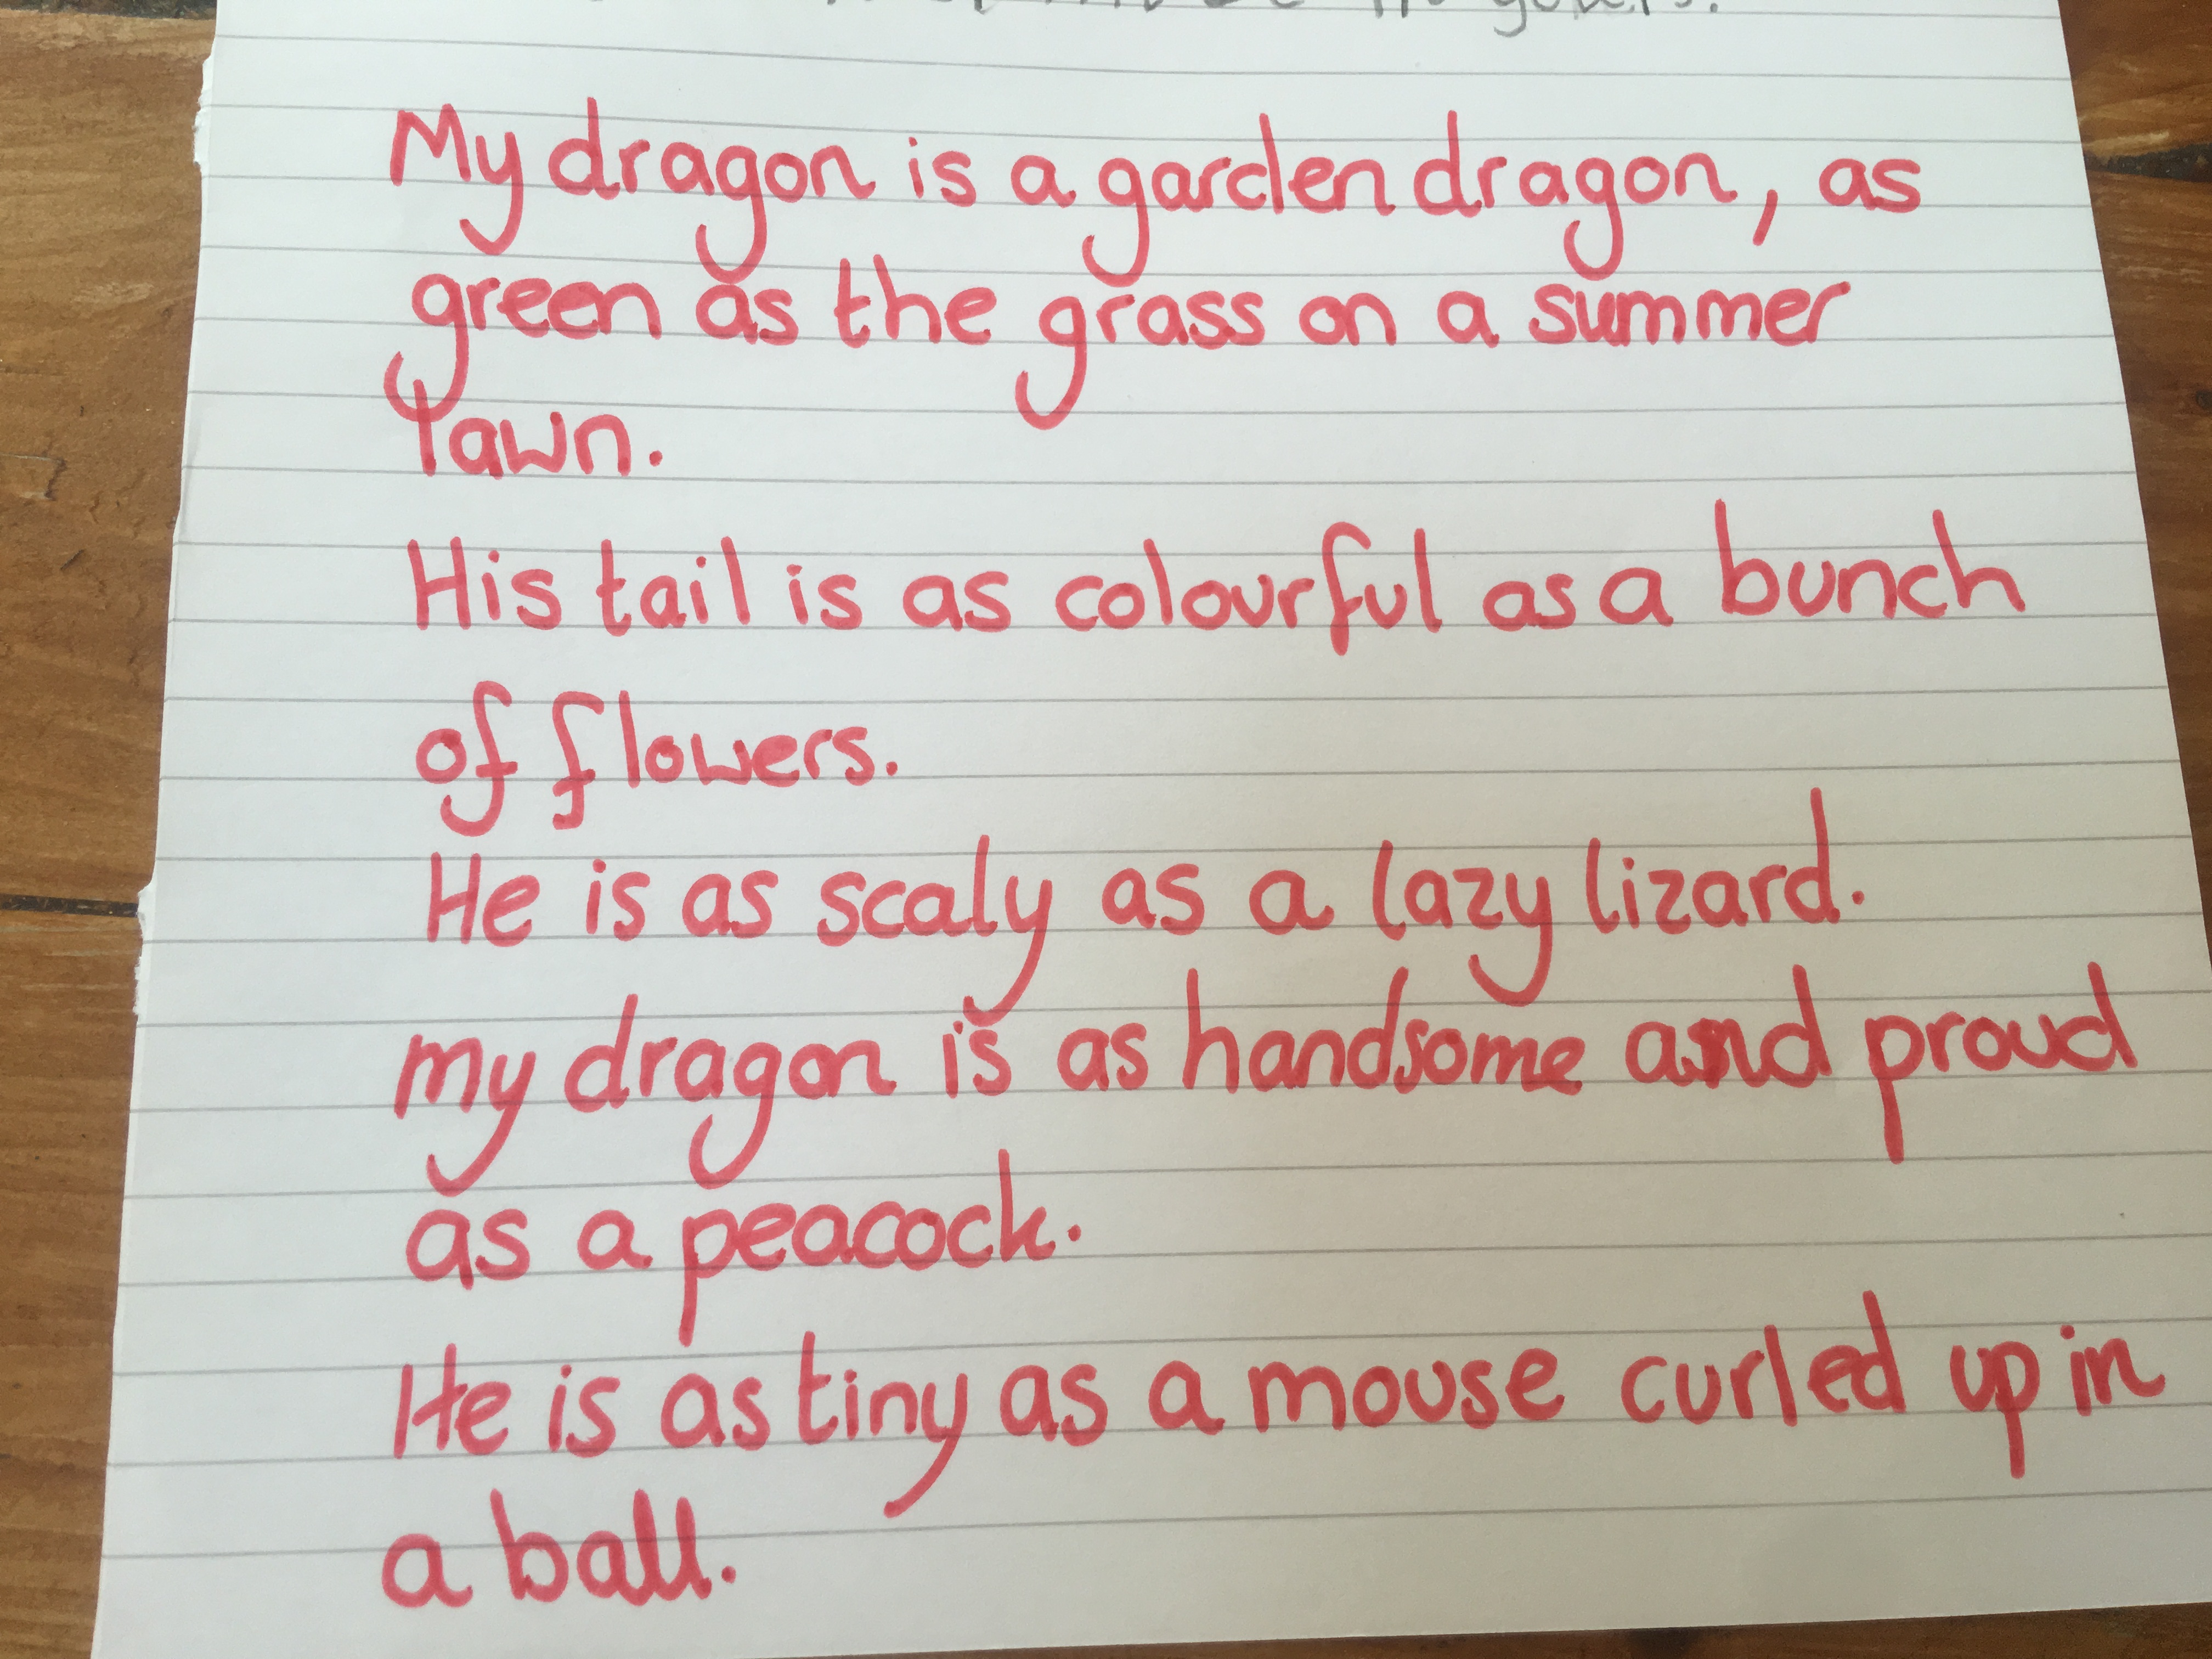 My dragon is a garden dragon, as
green as the grass on a summer
lawn.
His tail is as colourful as a bunch
of flowers.
He is as scaly as a lazy lizard.
my dragon is as handsome and proud
as a peacock.
He is as tiny as a mouse curled up in
a ball.